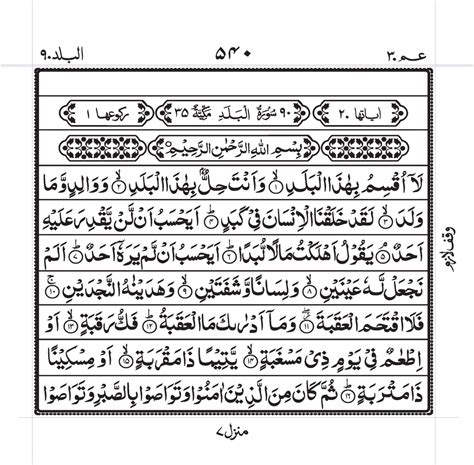 عـم ٣٠ ۵۴۰ البلد ٩٠
اٰیاتها ٢٠ ٩٠ سُوْرَةُ الْبَلَدِ مَكِّیَّةٌ ٣۵ رکوعها ١
بِسْمِ اللّٰهِ الرَّحْمٰنِ الرَّحِیْمِ
لَاۤ اُقْسِمُ بِهٰذَا الْبَلَدِ ۙ﴿١﴾ وَ اَنْتَ حِلٌّۢ بِهٰذَا الْبَلَدِ ۙ﴿٢﴾ وَ وَالِدٍ وَّ مَا
وَلَدَ ۙ﴿٣﴾ لَقَدْ خَلَقْنَا الْاِنْسَانَ فِیْ كَبَدٍ ؕ﴿۴﴾ اَیَحْسَبُ اَنْ لَّنْ یَّقْدِرَ عَلَیْهِ
اَحَدٌ ۘ﴿۵﴾ یَقُوْلُ اَهْلَكْتُ مَالًا لُّبَدًا ؕ﴿٦﴾ اَیَحْسَبُ اَنْ لَّمْ یَرَهٗۤ اَحَدٌ ؕ﴿٧﴾ اَلَمْ
نَجْعَلْ لَّهٗ عَیْنَیْنِ ۙ﴿٨﴾ وَ لِسَانًا وَّ شَفَتَیْنِ ۙ﴿٩﴾ وَ هَدَیْنٰهُ النَّجْدَیْنِ ۚ﴿١٠﴾
فَلَا اقْتَحَمَ الْعَقَبَةَ ۖ﴿١١﴾ وَ مَاۤ اَدْرٰىكَ مَا الْعَقَبَةُ ؕ﴿١٢﴾ فَكُّ رَقَبَةٍ ۙ﴿١٣﴾ اَوْ
اِطْعٰمٌ فِیْ یَوْمٍ ذِیْ مَسْغَبَةٍ ۙ﴿١۴﴾ یَّتِیْمًا ذَا مَقْرَبَةٍ ۙ﴿١۵﴾ اَوْ مِسْكِیْنًا
ذَا مَتْرَبَةٍ ؕ﴿١٦﴾ ثُمَّ كَانَ مِنَ الَّذِیْنَ اٰمَنُوْا وَ تَوَاصَوْا بِالصَّبْرِ وَ تَوَاصَوْا
وقف لازم
منزل ٧